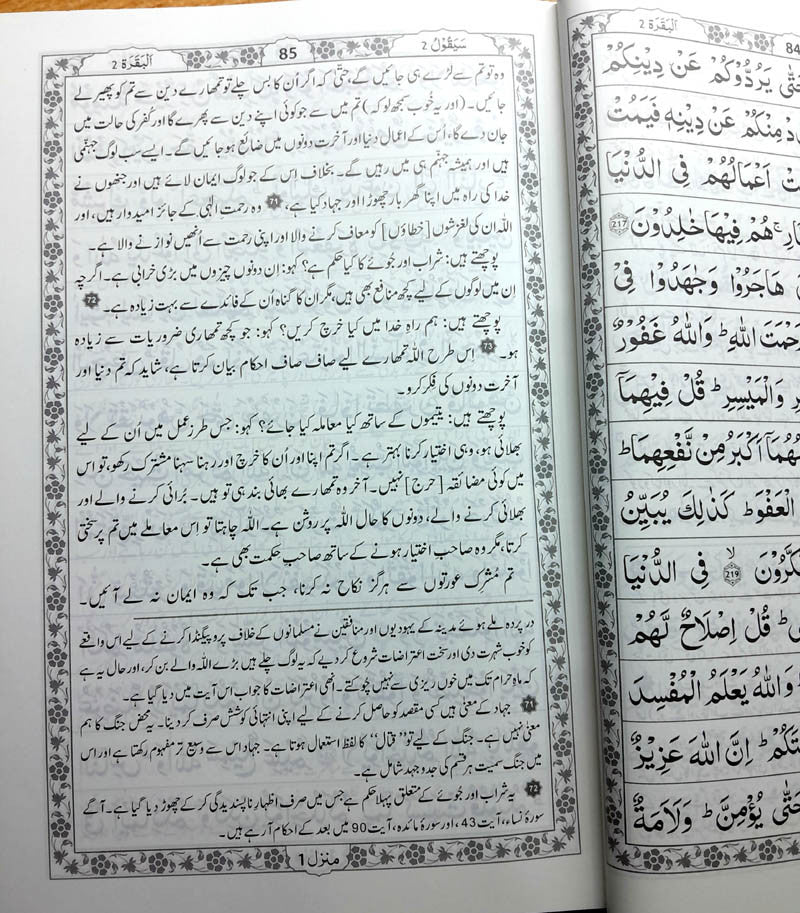 سَیَقُوْلُ 2
85
اَلْبَقَرَة 2
وہ تو تم سے لڑے ہی جائیں گے، حتّٰی کہ اگر اُن کا بس چلے تو تمھارے دین سے تم کو پھیر لے
جائیں۔ (اور یہ خُوب سمجھ لو کہ) تم میں سے جو کوئی اپنے دین سے پھرے گا اور کُفر کی حالت میں
جان دے گا، اُس کے اعمال دُنیا اور آخرت دونوں میں ضائع ہو جائیں گے۔ ایسے سب لوگ جہنّمی
ہیں اور ہمیشہ جہنّم ہی میں رہیں گے۔ بخلاف اِس کے جو لوگ ایمان لائے ہیں اور جنھوں نے
خدا کی راہ میں اپنا گھر بار چھوڑا اور جہاد کیا ہے، 71 وہ رحمتِ الٰہی کے جائز امیدوار ہیں، اور
اللہ ان کی لغزشوں [خطاؤں] کو معاف کرنے والا اور اپنی رحمت سے اُنھیں نوازنے والا ہے۔
پوچھتے ہیں: شراب اور جُوئے کا کیا حکم ہے؟ کہو: اِن دونوں چیزوں میں بڑی خرابی ہے۔ اگرچہ
اِن میں لوگوں کے لیے کچھ منافع بھی ہیں، مگر اِن کا گناہ اُن کے فائدے سے بہت زیادہ ہے۔ 72
پوچھتے ہیں: ہم راہِ خدا میں کیا خرچ کریں؟ کہو: جو کچھ تمھاری ضروریات سے زیادہ
ہو۔ 73 اِس طرح اللہ تمھارے لیے صاف صاف احکام بیان کرتا ہے، شاید کہ تم دنیا اور
آخرت دونوں کی فکر کرو۔
پوچھتے ہیں: یتیموں کے ساتھ کیا معاملہ کیا جائے؟ کہو: جس طرزِ عمل میں اُن کے لیے
بھلائی ہو، وہی اختیار کرنا بہتر ہے۔ اگر تم اپنا اور اُن کا خرچ اور رہنا سہنا مشترک رکھو، تو اس
میں کوئی مضائقہ [حرج] نہیں۔ آخر وہ تمھارے بھائی بند ہی تو ہیں۔ بُرائی کرنے والے اور
بھلائی کرنے والے، دونوں کا حال اللہ پر روشن ہے۔ اللہ چاہتا تو اس معاملے میں تم پر سختی
کرتا، مگر وہ صاحبِ اختیار ہونے کے ساتھ صاحبِ حکمت بھی ہے۔
تم مُشرِک عورتوں سے ہرگز نکاح نہ کرنا، جب تک کہ وہ ایمان نہ لے آئیں۔
در پردہ ملے ہوئے مدینہ کے یہودیوں اور منافقین نے مسلمانوں کے خلاف پروپیگنڈا کرنے کے لیے اس واقعے
کو خوب شہرت دی اور سخت اعتراضات شروع کر دیے کہ یہ لوگ چلے ہیں بڑے اللہ والے بن کر، اور حال یہ ہے
کہ ماہِ حرام تک میں خوں ریزی سے نہیں چُوکتے۔ انھی اعتراضات کا جواب اس آیت میں دیا گیا ہے۔
71 جہاد کے معنی ہیں کسی مقصد کو حاصل کرنے کے لیے اپنی انتہائی کوشش صَرف کر دینا۔ یہ محض جنگ کا ہم
معنی نہیں ہے۔ جنگ کے لیے تو ”قتال“ کا لفظ استعمال ہوتا ہے۔ جہاد اس سے وسیع تر مفہوم رکھتا ہے اور اس
میں جنگ سمیت ہر قسم کی جدوجہد شامل ہے۔
72 یہ شراب اور جُوئے کے متعلق پہلا حکم ہے جس میں صرف اظہارِ ناپسندیدگی کر کے چھوڑ دیا گیا ہے۔ آگے
سورۂ نساء، آیت 43، اور سورۂ مائدہ، آیت 90 میں بعد کے احکام آرہے ہیں۔
منزل 1
84
اَلْبَقَرَة 2
حَتّٰی یَرُدُّوْکُمْ عَنْ دِیْنِکُمْ
مِنْکُمْ عَنْ دِیْنِهٖ فَیَمُتْ
اَعْمَالُهُمْ فِی الدُّنْیَا
هُمْ فِیْهَا خٰلِدُوْنَ 217
هَاجَرُوْا وَجٰهَدُوْا فِیْ
رَحْمَتَ اللّٰهِ ؕ وَاللّٰهُ غَفُوْرٌ
وَالْمَیْسِرِ ؕ قُلْ فِیْهِمَاۤ
اَکْبَرُ مِنْ نَّفْعِهِمَا ؕ
الْعَفْوَ ؕ کَذٰلِكَ یُبَیِّنُ
219 فِی الدُّنْیَا
قُلْ اِصْلَاحٌ لَّهُمْ
وَاللّٰهُ یَعْلَمُ الْمُفْسِدَ
اِنَّ اللّٰهَ عَزِیْزٌ
حَتّٰی یُؤْمِنَّ ؕ وَلَاَمَةٌ